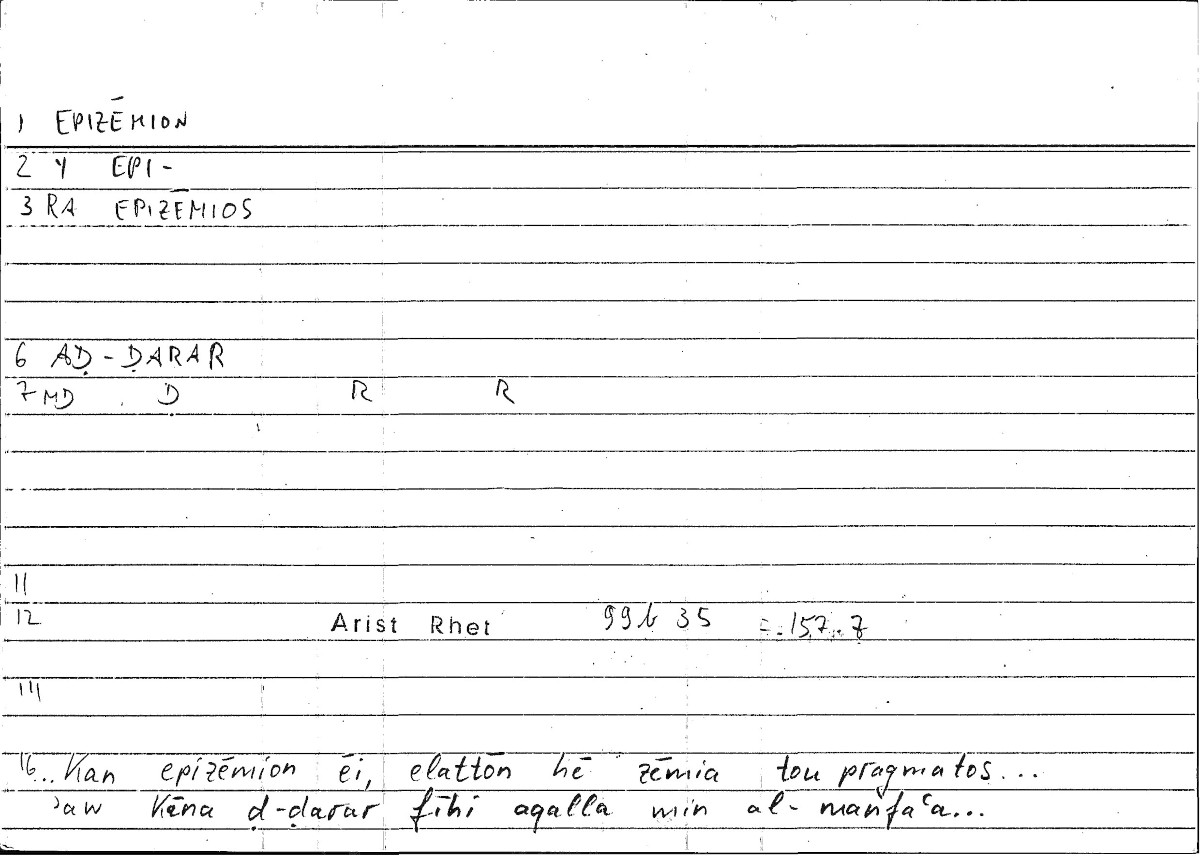 1 EPIZĒMION
2 Y EPI-
3 RA EPIZĒMIOS
6 AḌ-ḌARAR
7 MD Ḍ R R
11
12 Arist Rhet 99b 35 = 157,7
14
16 ..Kan epizēmion ēi, elattōn hē zēmia tou pragmatos...
ʾaw kāna ḍ-ḍarar fīhi aqalla min al-manfaʿa...